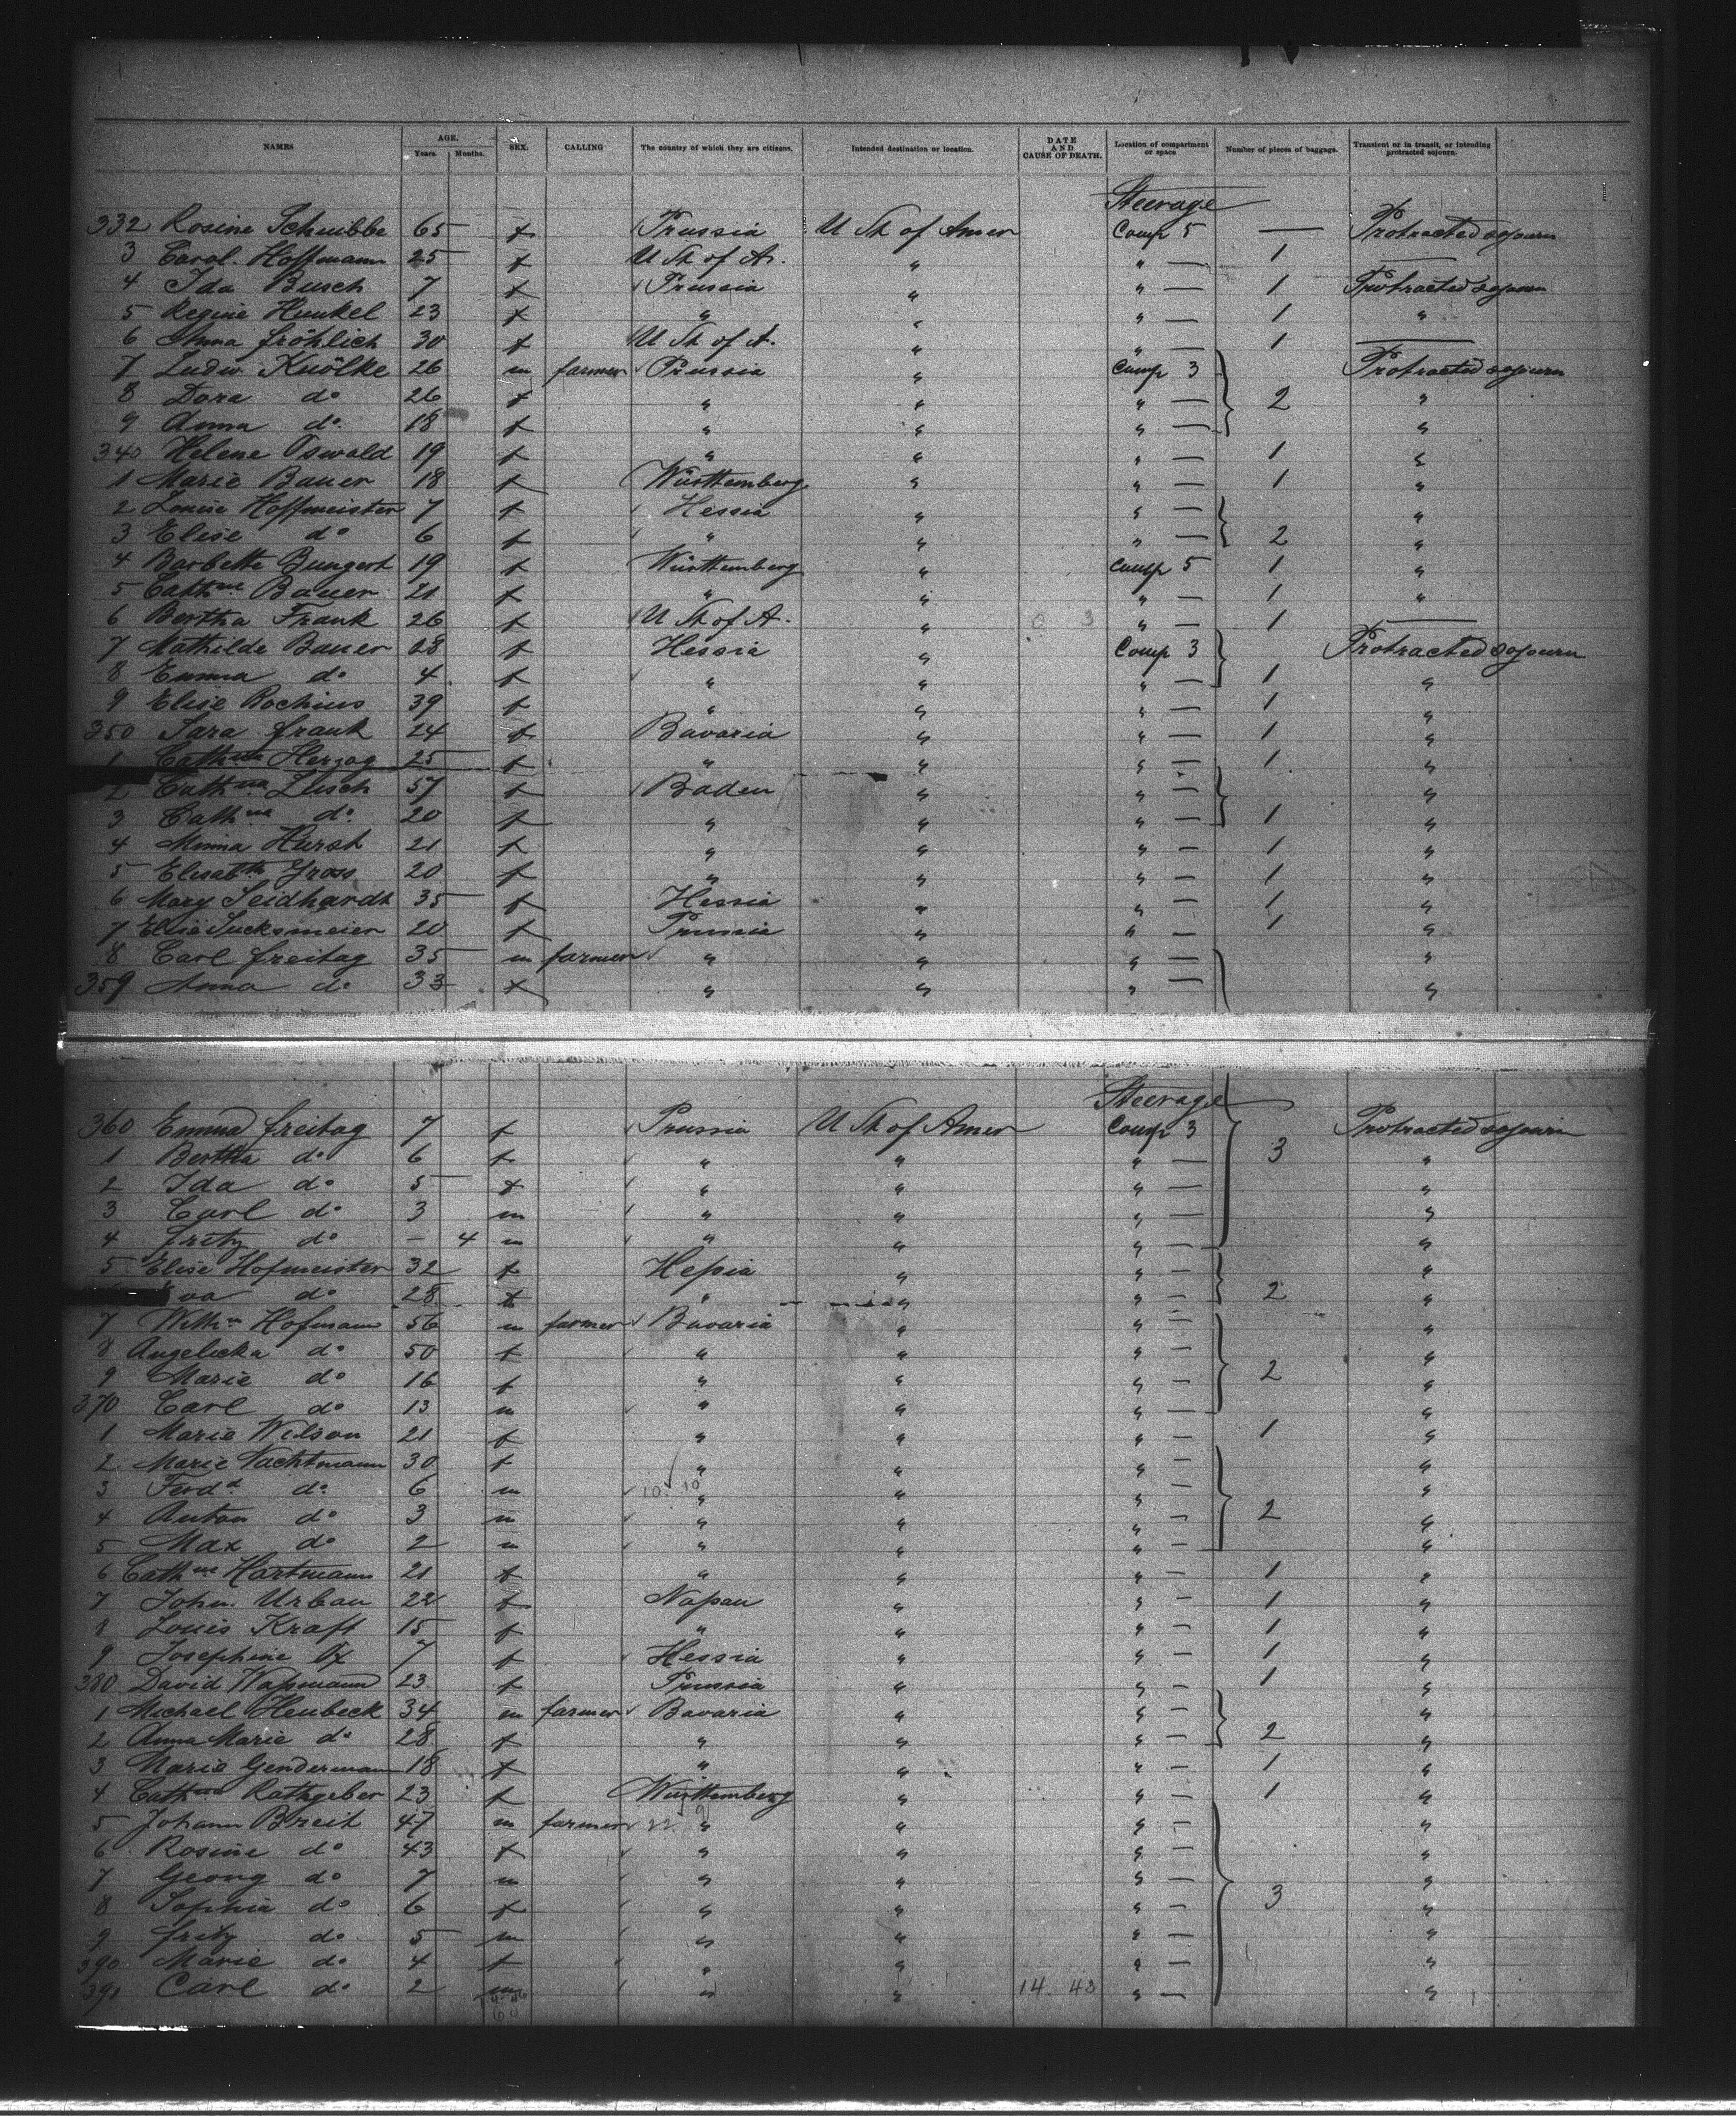 NAMES AGE. Years. Months. SEX. CALLING The country of which they are citizens. Intended destination or location. DATE AND CAUSE OF DEATH. Location of compartment or space Number of pieces of baggage. Transient or in transit, or intending protracted sojourn.
Steerage
332 Rosine Schnibbe 65 f Prussia U St of Amer Comp 5 — Protracted sojourn
3 Carol. Hoffmann 25 f U St of A. " " — 1 —
4 Ida Busch 7 f Prussia " " — 1 Protracted sojourn
5 Regine Hunkel 23 f " " " — 1 "
6 Anna fröhlich 30 f U St of A. " " — 1 —
7 Ludw. Knölke 26 m farmer Prussia " Comp 3 Protracted sojourn
8 Dora do 26 f " " " — 2 "
9 Anna do. 18 f " " " — "
340 Helene Oswald 19 f " " " — 1 "
1 Marie Bauer 18 f Württemberg " " — 1 "
2 Louise Hoffmeister 7 f Hessia " " — "
3 Elise do 6 f " " " — 2 "
4 Barbette Bungert 19 f Württemberg " Comp 5 1 "
5 Cathne Bauer 21 f " " " — 1 "
6 Bertha Frank 26 f U St of A. " 0 3 " — 1 —
7 Mathilde Bauer 28 f Hessia " Comp 3 Protracted sojourn
8 Emma do 4 f " " " — 1 "
9 Elise Rochius 39 f " " " — 1 "
350 Sara frank 24 f Bavaria " " — 1 "
1 Cathne Herzog 25 f " " " — 1 "
2 Cathna Lusch 57 f Baden " " — "
3 Cathne do. 20 f " " " — 1 "
4 Minna Hursh 21 f " " " — 1 "
5 Elisabth Gross 20 f " " " — 1 "
6 Mary Seidhardt 35 f Hessia " " — 1 "
7 Elise Sucksmeier 20 f Prussia " " — 1 "
8 Carl freitag 35 m farmer " " " — "
359 Anna do 33 f " " " — "
Steerage
360 Emma freitag 7 f Prussia U St of Amer Comp 3 Protracted sojourn
1 Bertha do 6 f " " " — 3 "
2 Ida do 5 f " " " — "
3 Carl do 3 m " " " — "
4 fritz do — 4 m " " " — "
5 Elise Hofmeister 32 f Heſsia " " — "
va do 28 f " " " — 2 "
7 Wilhm Hofmann 56 m farmer Bavaria " " — "
8 Angelicka do 50 f " " " — "
9 Marie do 16 f " " " — 2 "
370 Carl do 13 m " " " — "
1 Marie Wilson 21 f " " " — 1 "
2 Marie Nachtmann 30 f " " " — "
3 Ferdd do 6 m 10 10 " " " — "
4 Anton do 3 m " " " — 2 "
5 Max do 2 m " " " — "
6 Cathne Hartmann 21 f " " " — 1 "
7 John. Urban 22 f Naſsau " " — 1 "
8 Louis Kraft 15 f " " " — 1 "
9 Josephine Ox 7 f Hessia " " — 1 "
380 David Waſsmann 23 f Prussia " " — 1 "
1 Michael Heubeck 34 m farmer Bavaria " " — "
2 Anna Marie do 28 f " " " — 2 "
3 Marie Gendermann 18 f " " " — 1 "
4 Cathna Rathgeber 23 f Württemberg " " — 1 "
5 Johann Breit 47 m farmer 22 " " " — "
6 Rosine do 43 f " " " — "
7 Georg do 7 m " " " — "
8 Sophia do 6 f " " " — 3 "
9 fritz do 5 m " " " — "
390 Marie do 4 f " " " — "
391 Carl do 2 m " " 14. 43 " — "